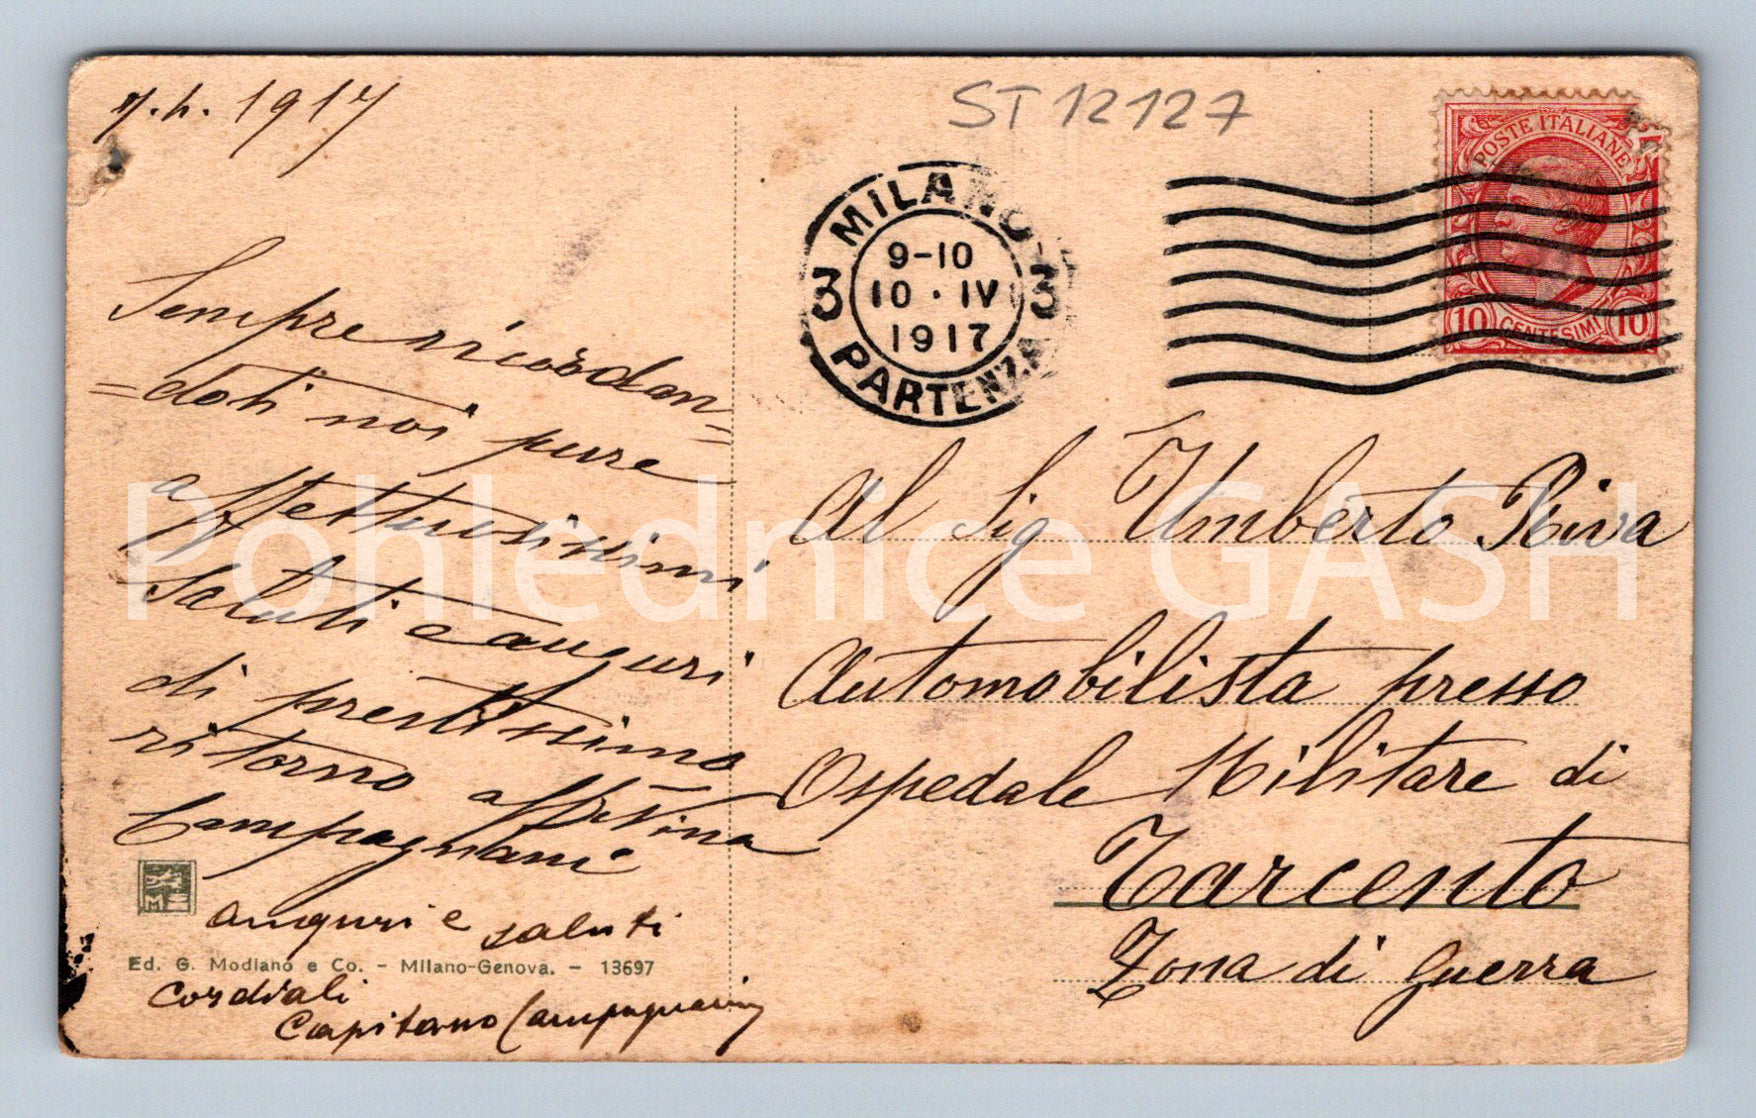 9.4. 1917
ST 12127
POSTE ITALIANE
10 CENTESIMI 10
MILANO
3 9-10 3
10 · IV
1917
PARTENZA
Sempre ricordan=
=doti noi pure
affettuosissimi
saluti e auguri
di prestissimo
ritorno aff Nina
Campagnani
auguri e saluti
cordiali
Capitano Campagnani
Al Sig Umberto Riva
Automobilista presso
Ospedale Militare di
Tarcento
Zona di Guerra
M
Ed. G. Modiano e Co. - Milano-Genova. - 13697
Pohlednice GASH